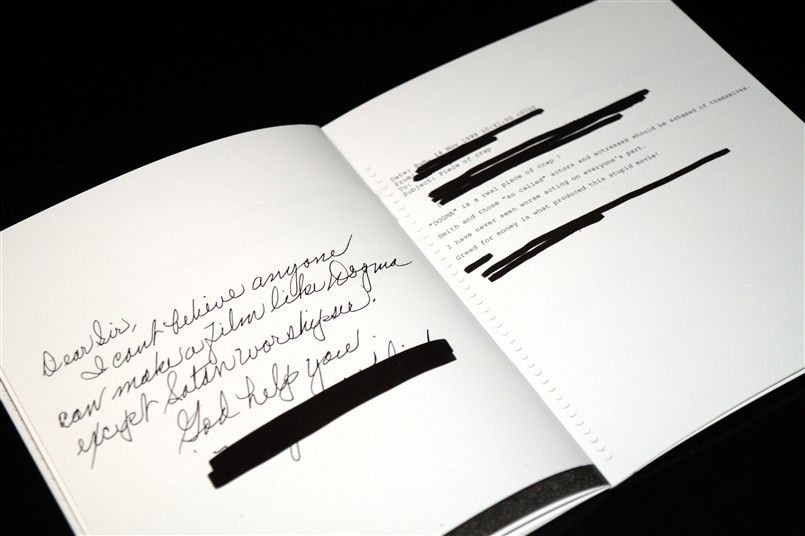 Dear Sir,
I cant believe anyone
can make a film like Dogma
except Satan worshipser.
God help you
Date: Sun, 14 Nov 1999
From:
To:
Subject: Piece of crap
"DOGMA" is a real piece of crap !
Smith and those "so called" actors and actresses should be ashamed of themselves.
I have never seen worse acting on everyone's part.
Greed for money is what produced this stupid movie!